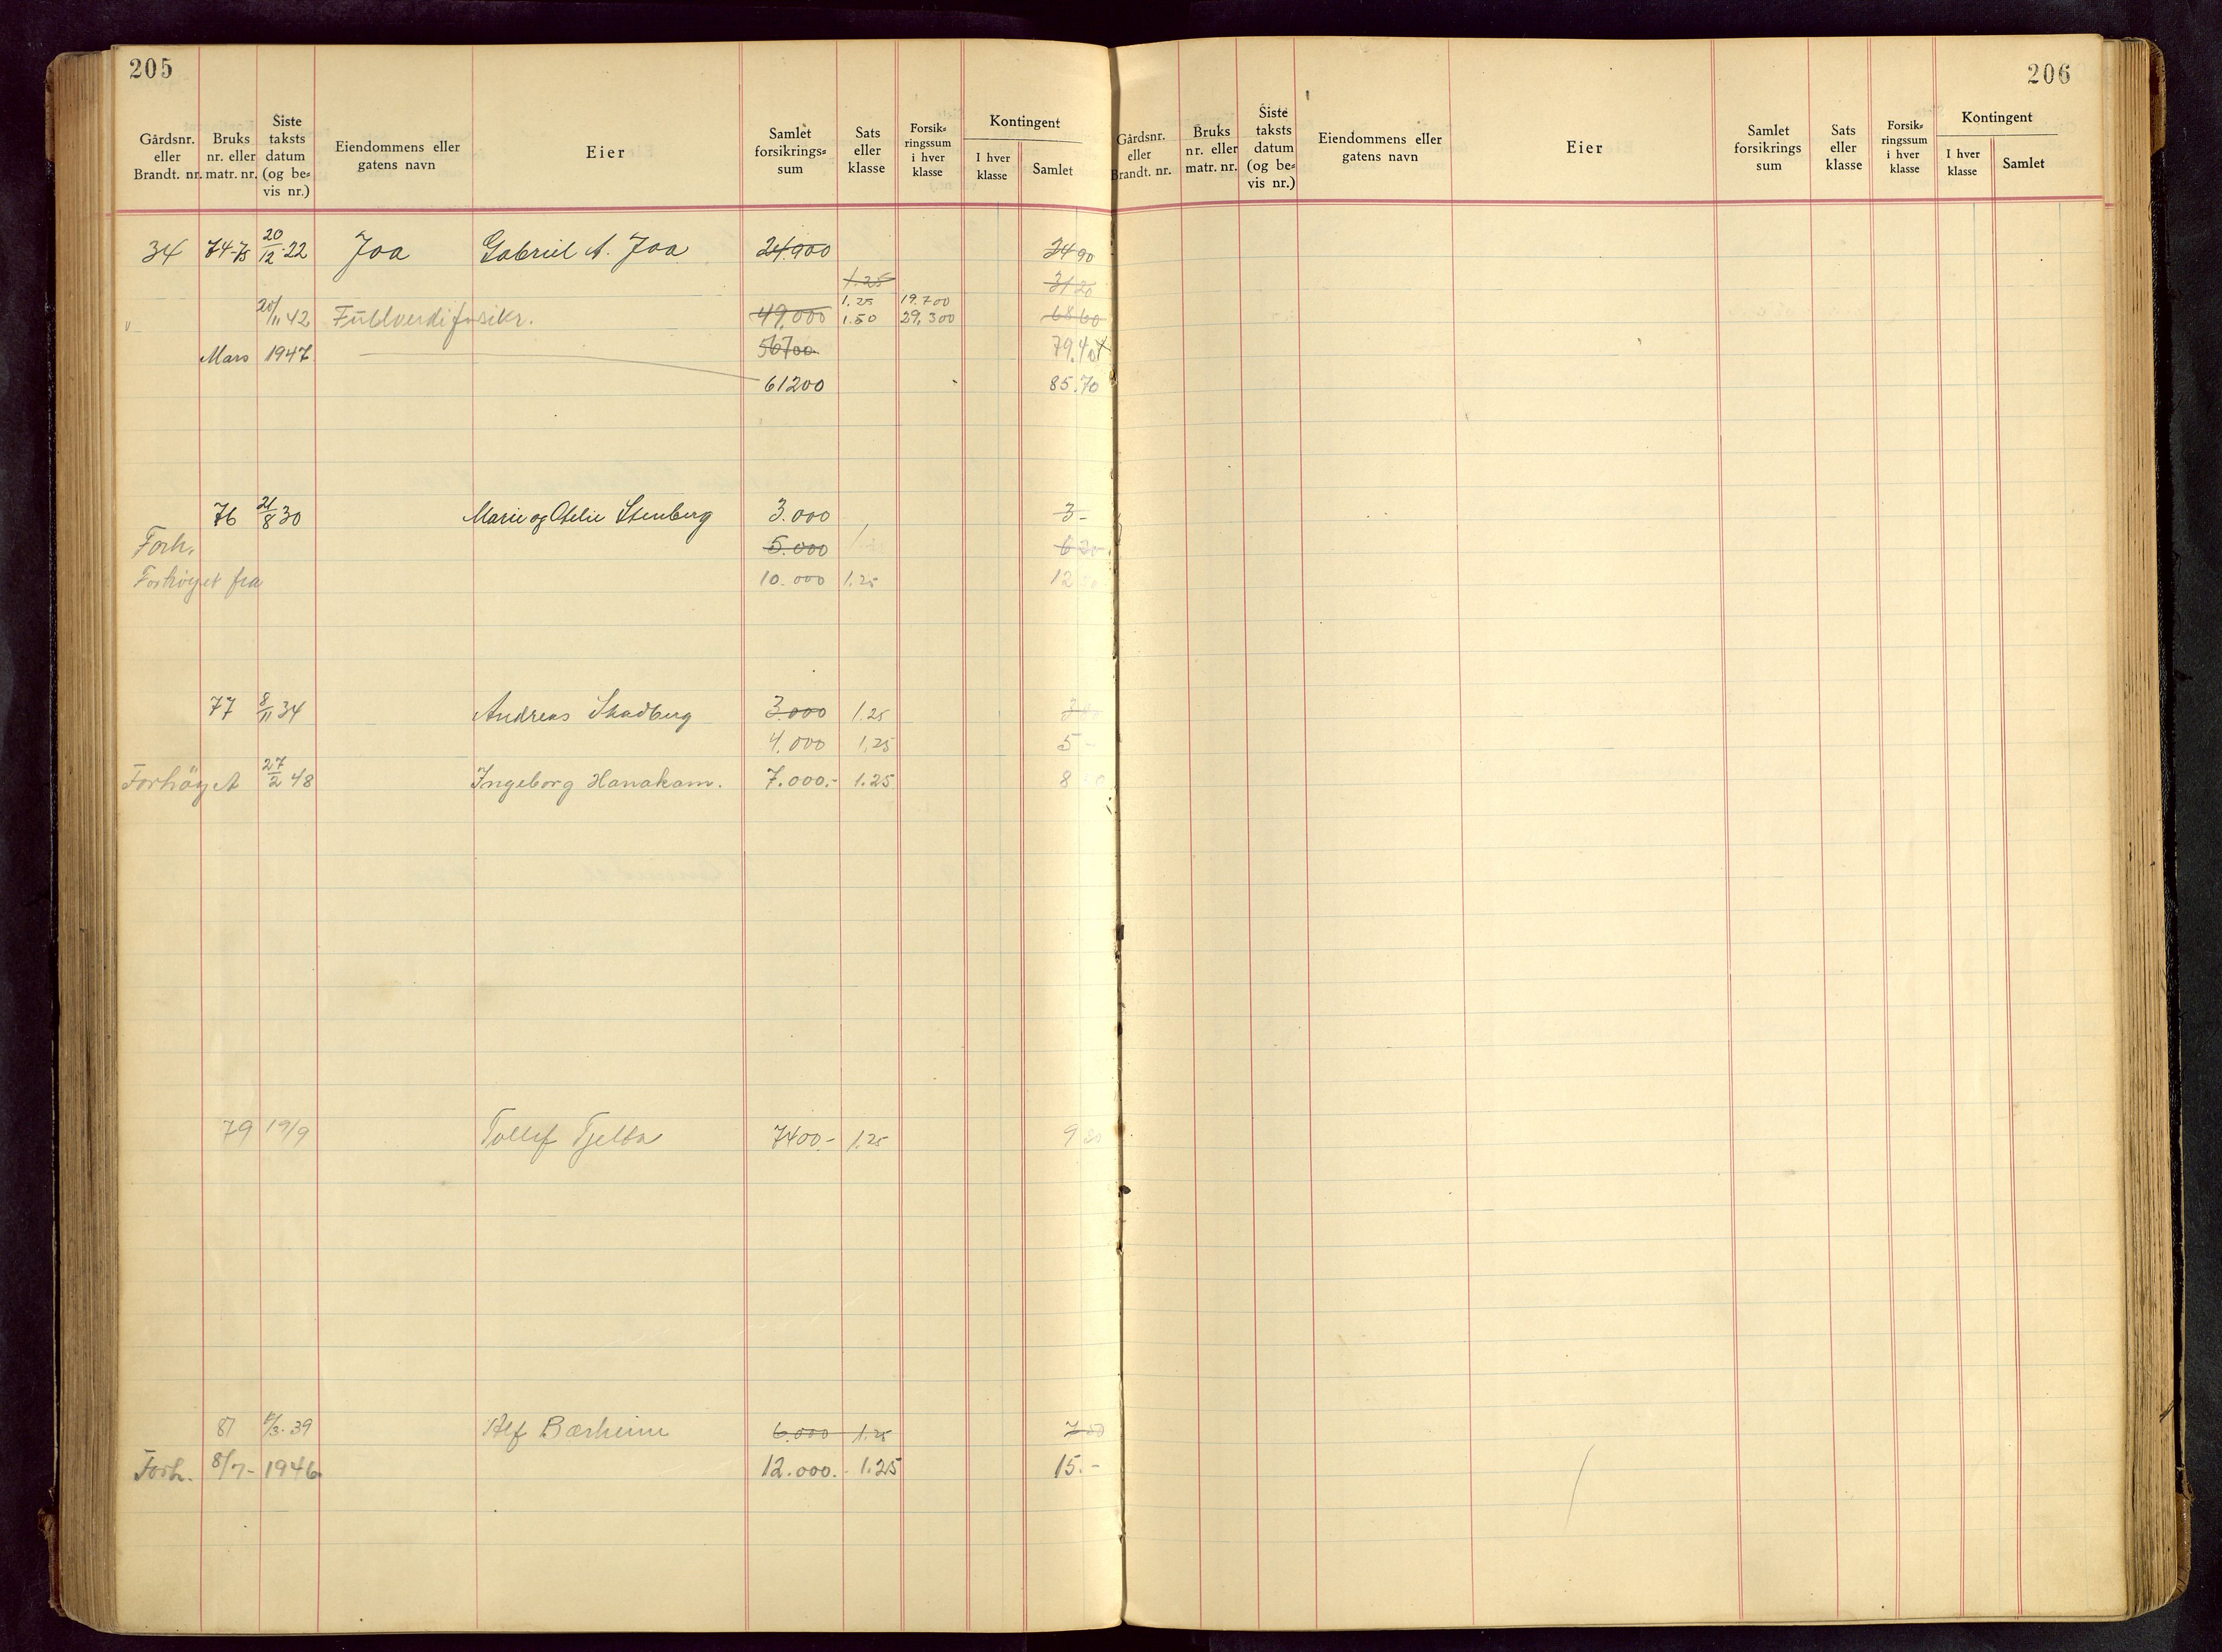 205
Gårdsnr. eller Brandt. nr.
Bruks nr. eller matr. nr.
Siste taksts datum (og be= vis nr.)
Eiendommens eller gatens navn
Eier
Samlet forsikrings= sum
Sats eller klasse
Forsik= ringssum i hver klasse
Kontingent
I hver klasse
Samlet
34 74-75 20/12-22 Joa Gabriel A. Joa 24.900 34 90
1.25 31 20
1.25 19.700
" 20/11 42 Fullverdiforsikr. 49,000 1.50 29,300 68 60
Mars 1947 56700 79.40
61200 85.70
76 21/8 30 Marie og Otelie Stenberg 3.000 3-
Forh. 5.000
Forhöyet fra 10.000 1.25 12
77 8/11 34 Andreas Skadberg 3.000 1.25
4.000 1,25 5-
Forhöyet 27/2 48 Ingeborg Hanakam. 7.000.- 1.25 8
79 19/9 Tollef Tjelta 7400.- 1.25 9
81 /3-39 Alf Bærheim 6.000 1.25 7 50
Forh. 8/7- 1946 12.000.- 1.25 15.-
206
Gårdsnr. eller Brandt. nr.
Bruks nr. eller matr. nr.
Siste taksts datum (og be= vis nr.)
Eiendommens eller gatens navn
Eier
Samlet forsikrings sum
Sats eller klasse
Forsik= ringssum i hver klasse
Kontingent
I hver klasse
Samlet